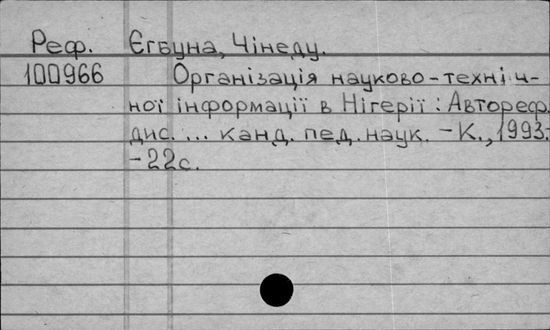 Реф. Єгбуна, Чінеду.
100966 Організація науково-техніч-
ної інформації в Нігерії : Автореф.
дис. ... канд. пед. наук. - К., 1993.
- 22с.